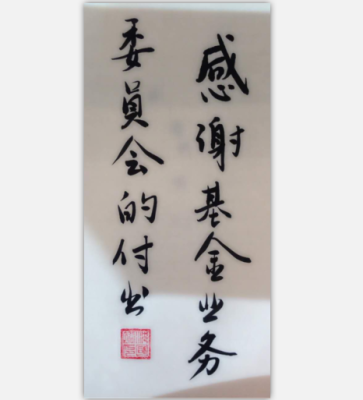 感谢基金业务
委員会的付出